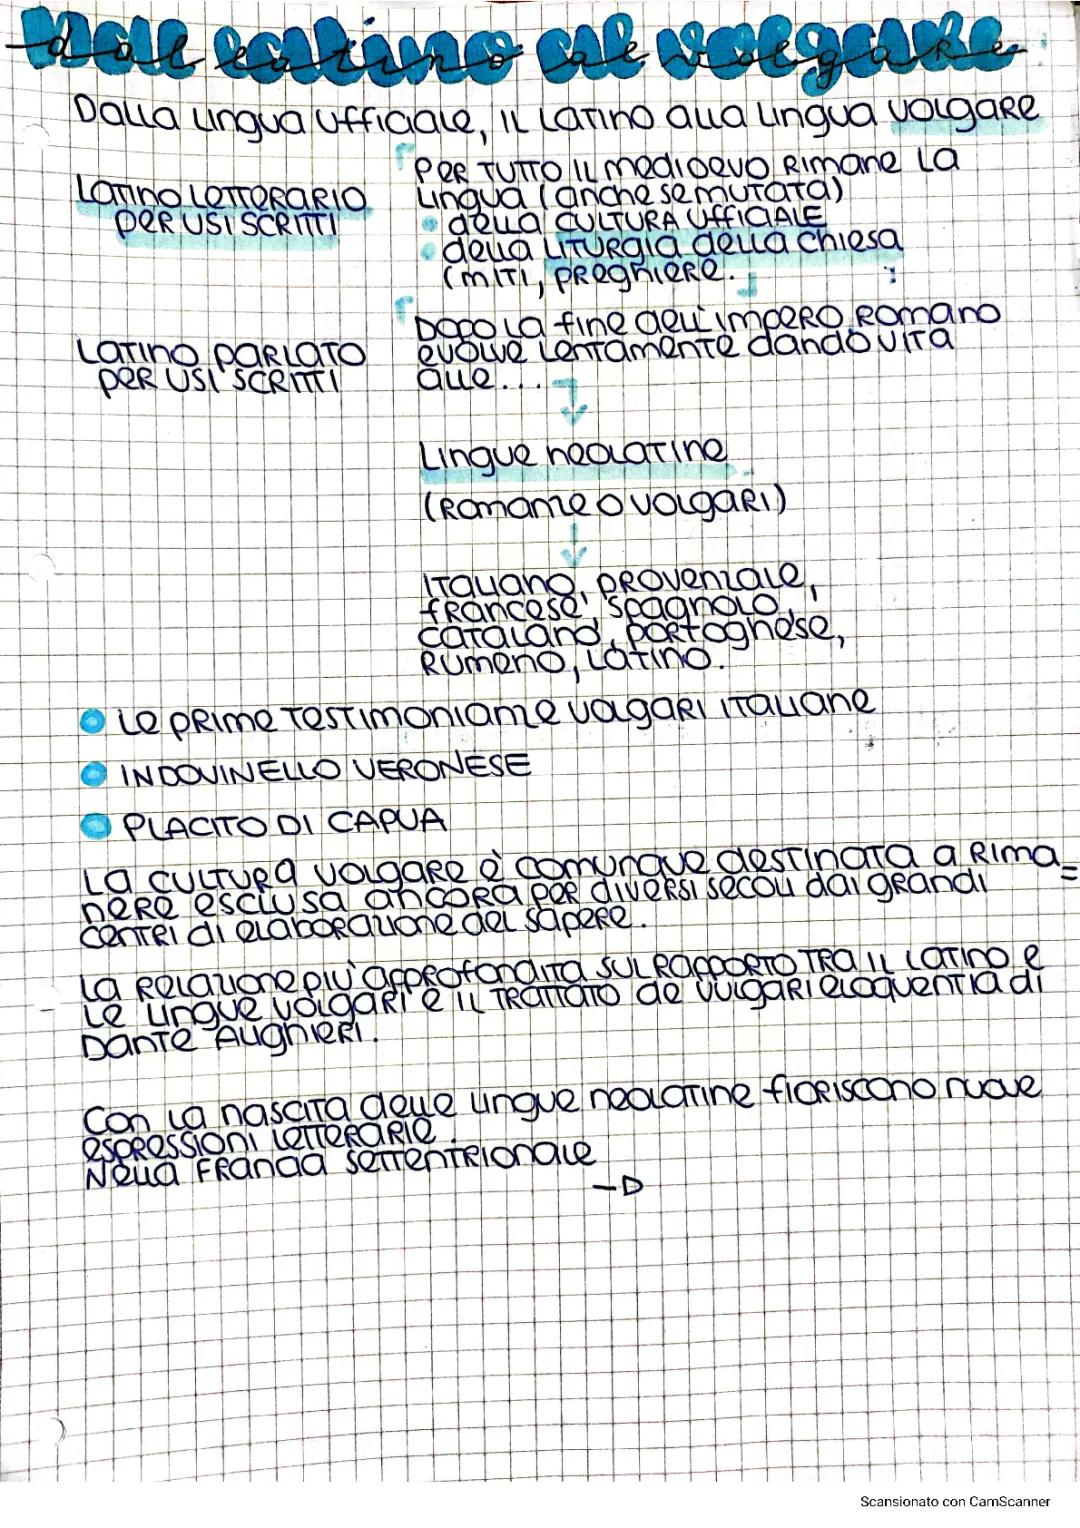 dal latino al volgare
Dalla lingua ufficiale, il latino alla lingua volgare
Latino letterario
per usi scritti
Per tutto il medioevo rimane la
lingua (anche se mutata)
della cultura ufficiale
della liturgia della chiesa
(miti, preghiere.
Latino parlato
per usi scritti
Dopo la fine dell'impero romano
evolve lentamente dando vita
alle...
Lingue neolatine
(Romanze o volgari)
Italiano, provenzale,
francese, spagnolo,
catalano, portoghese,
Rumeno, Latino.
Le prime testimonianze volgari italiane
INDOVINELLO VERONESE
PLACITO DI CAPUA
La cultura volgare è comunque destinata a rima=
nere esclusa ancora per diversi secoli dai grandi
centri di elaborazione del sapere.
La relazione più approfondita sul rapporto tra il latino e
le lingue volgari è il trattato de vulgari eloquentia di
Dante Alighieri.
Con la nascita delle lingue neolatine fioriscono nuove
espressioni letterarie.
Nella Francia settentrionale
Scansionato con CamScanner